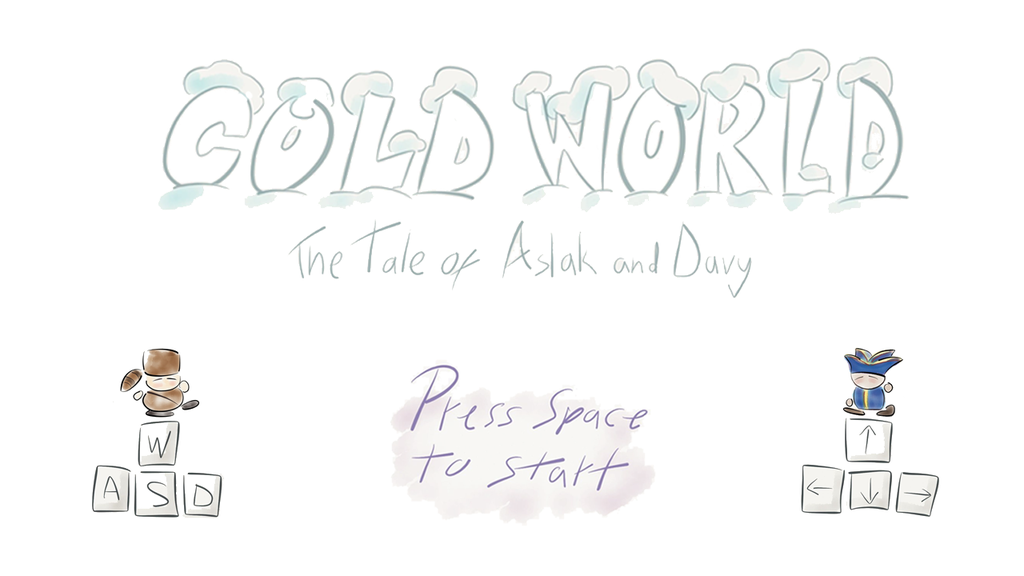 COLD WORLD
The Tale of Aslak and Davy
Press Space
to start
W
A S D
↑
← ↓ →